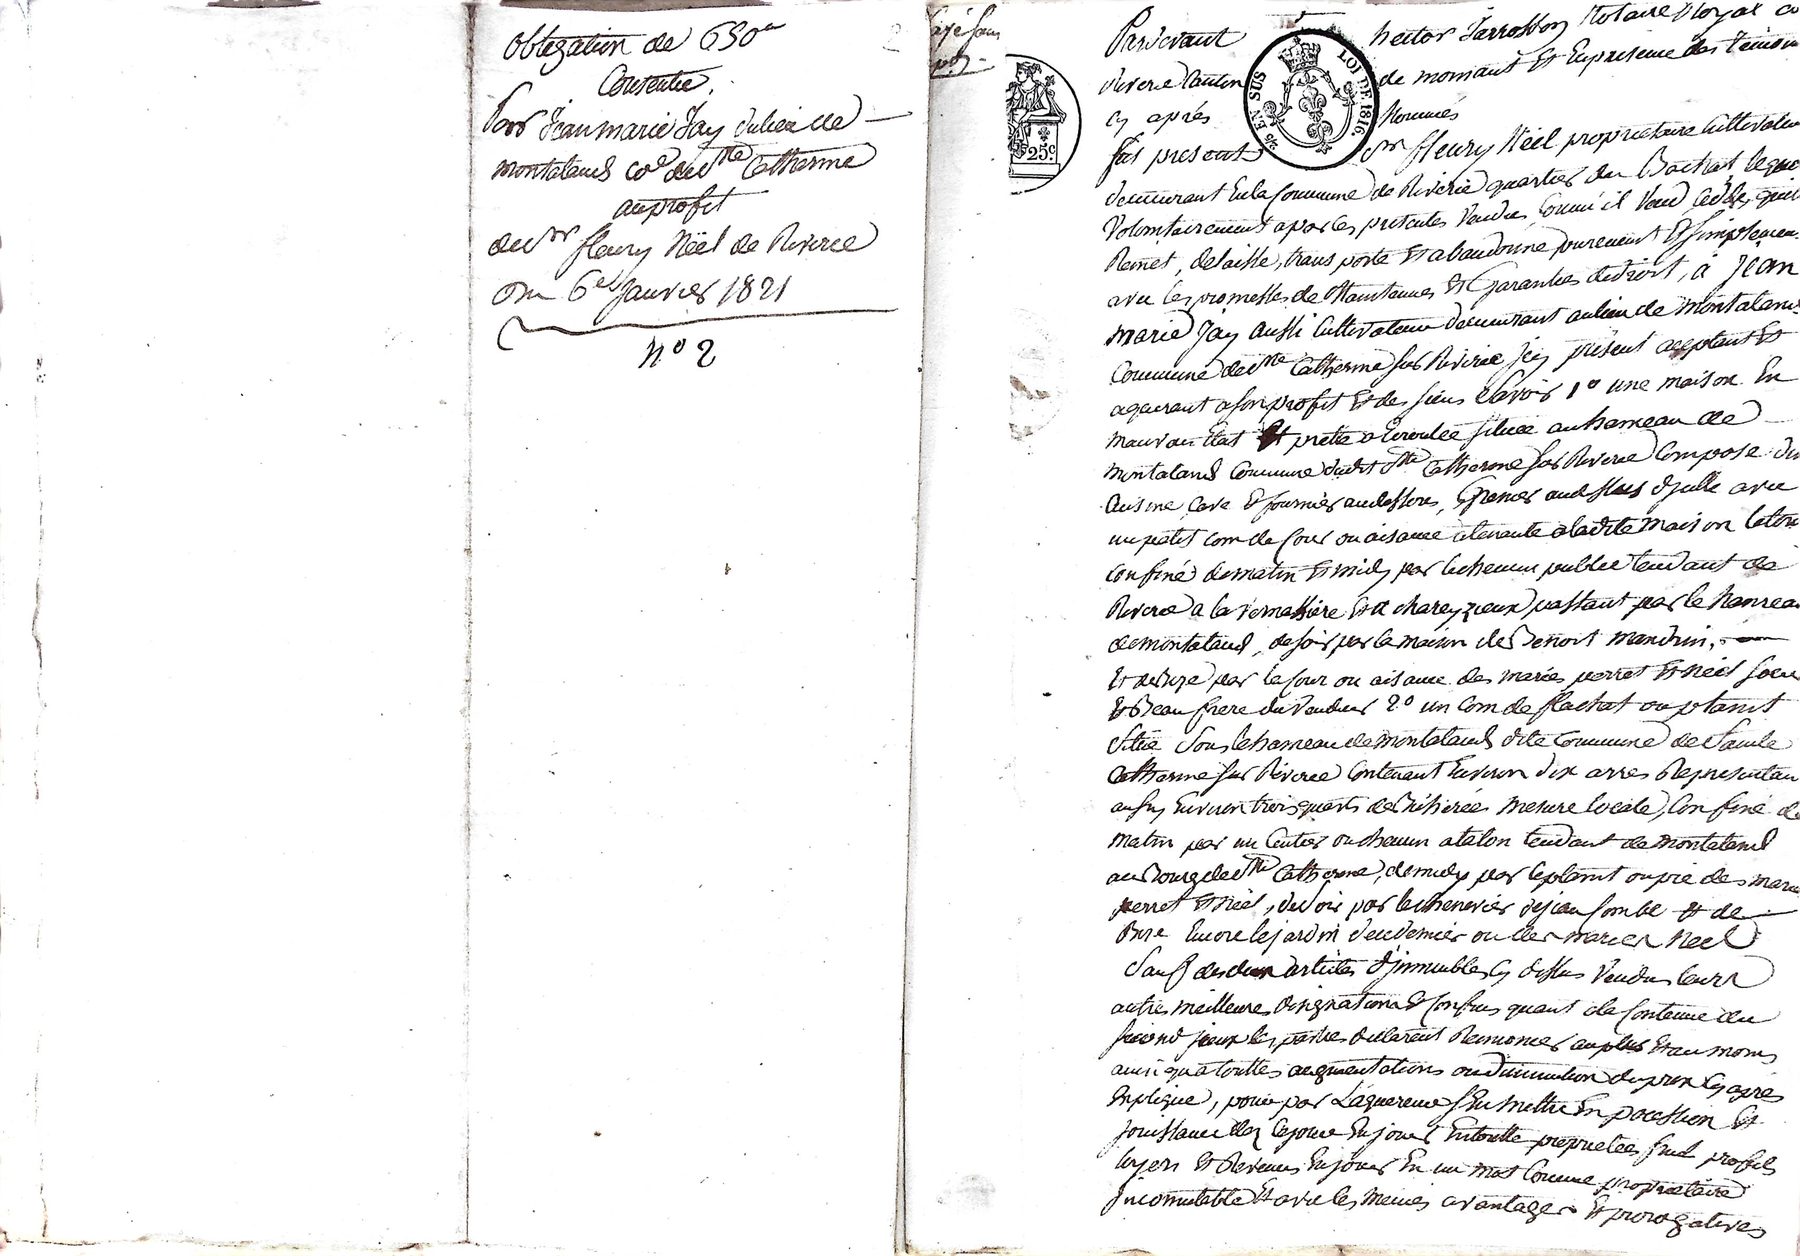 Obligation de 650 #
Consentie
Par Jean marie Jay du lieu de
montaland Cne de Ste Catherine
au profit
du Sr fleury Néel de Riverie
Du 6e Janvier 1821
n° 2
2
payé sans
Pardevant hector Jarrosson Notaire Royal
Riverie Canton de mornant Et En presence des temoins
Cy après Nommés
fut present Sr fleury Néel propriétaire Cultivateur
demeurant En la Commune de Riverie quartier du Bachat lequel
volontairement a par les presentes vendu, Comme il vend Cède, quitte
Remet, delaisse, transporte Et abandonne purement Et Simplement
avec les promesses de Maintenues Et Garanties de droit, à Jean
marie Jay aussi Cultivateur demeurant au lieu de montaland
Commune de Ste Catherine sur Riverie Jcy présent acceptant Et
aquerant a son profit Et des siens Savoir 1° une maison En
mauvais Etat Et prette a Ecroulée située au hameau de
montaland Commune dudit Ste Catherine sur Riverie Composé d'un
Cuisine, Cave Et fournier au dessous, Grenier au dessus d'jcelle avec
un petit Com de Cour ou aisance atenante a ladite maison le tout
confiné de matin Et midy par le chemin public tendant de
Riverie a la Et a chareyzieux, passant par le hameau
de montaland, de soir par la maison de Benoit mandrin,
Et de Bize par la Cour ou aisance des mariés perret Et Néel soeur
Et Beau frere du Vendeur 2° un Com de flachat ou planit
Situé Sous le hameau de montaland dite Commune de Sainte
Catherine sur Riverie Contenant Environ dix arres Representan
Environ trois quarts de Bicherées mesure locale, Confiné de
matin par un Centier ou chemin a talon tendant de montaland
au Bourg de Ste Catherine, de midy par le planit ou pré des mariés
perret Et Néel, de Soir par le chenevier de jean Combe Et de
Bize Encore le jardin de ce dernier ou des mariés Neel
Sauf des deux articles d'jmmeubles Cy dessus Vendus leurs
autres meilleures designations Et Confins quant a la Contenue du
second jceux les parties declarent Renoncer au plus Et au moins
ainsi qu'a touttes augmentations ou diminution du prix Cy après
Expliqué, pour par L'aquereur S'En mettre En possession Et
jouissance des Ce jour En jouir En toutte proprietée fruit profits
loyers Et Revenus En jouir En un mot Comme proprietaire
jncomutable Et avec les memes avantages Et prerogatives
25c
25 EN SUS
LOI DE 1816.